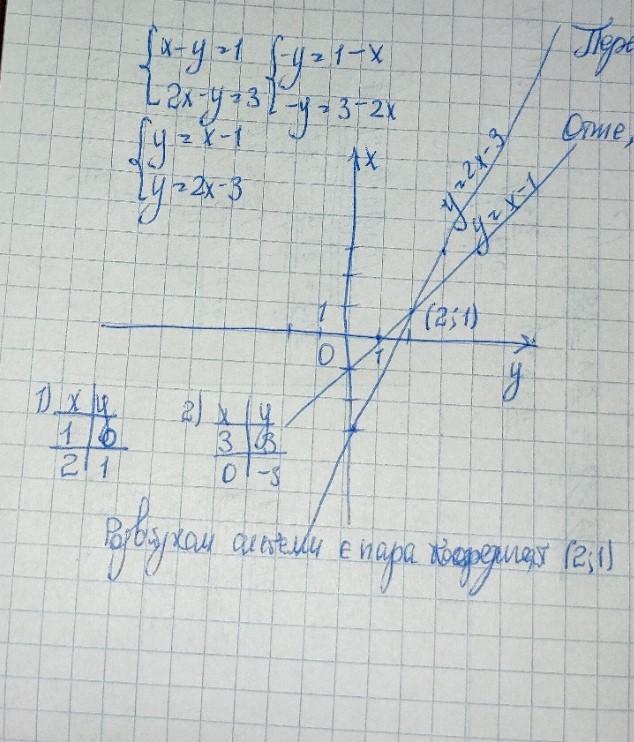 {x-y=1 {-y=1-x
{2x-y=3 {-y=3-2x
{y=x-1
{y=2x-3
x
y=2x-3
y=x-1
1
(2;1)
0
1
y
1) x y
1 0
2 1
2) x y
3 3
0 -3
Розв'язком системи є пара координат (2;1)